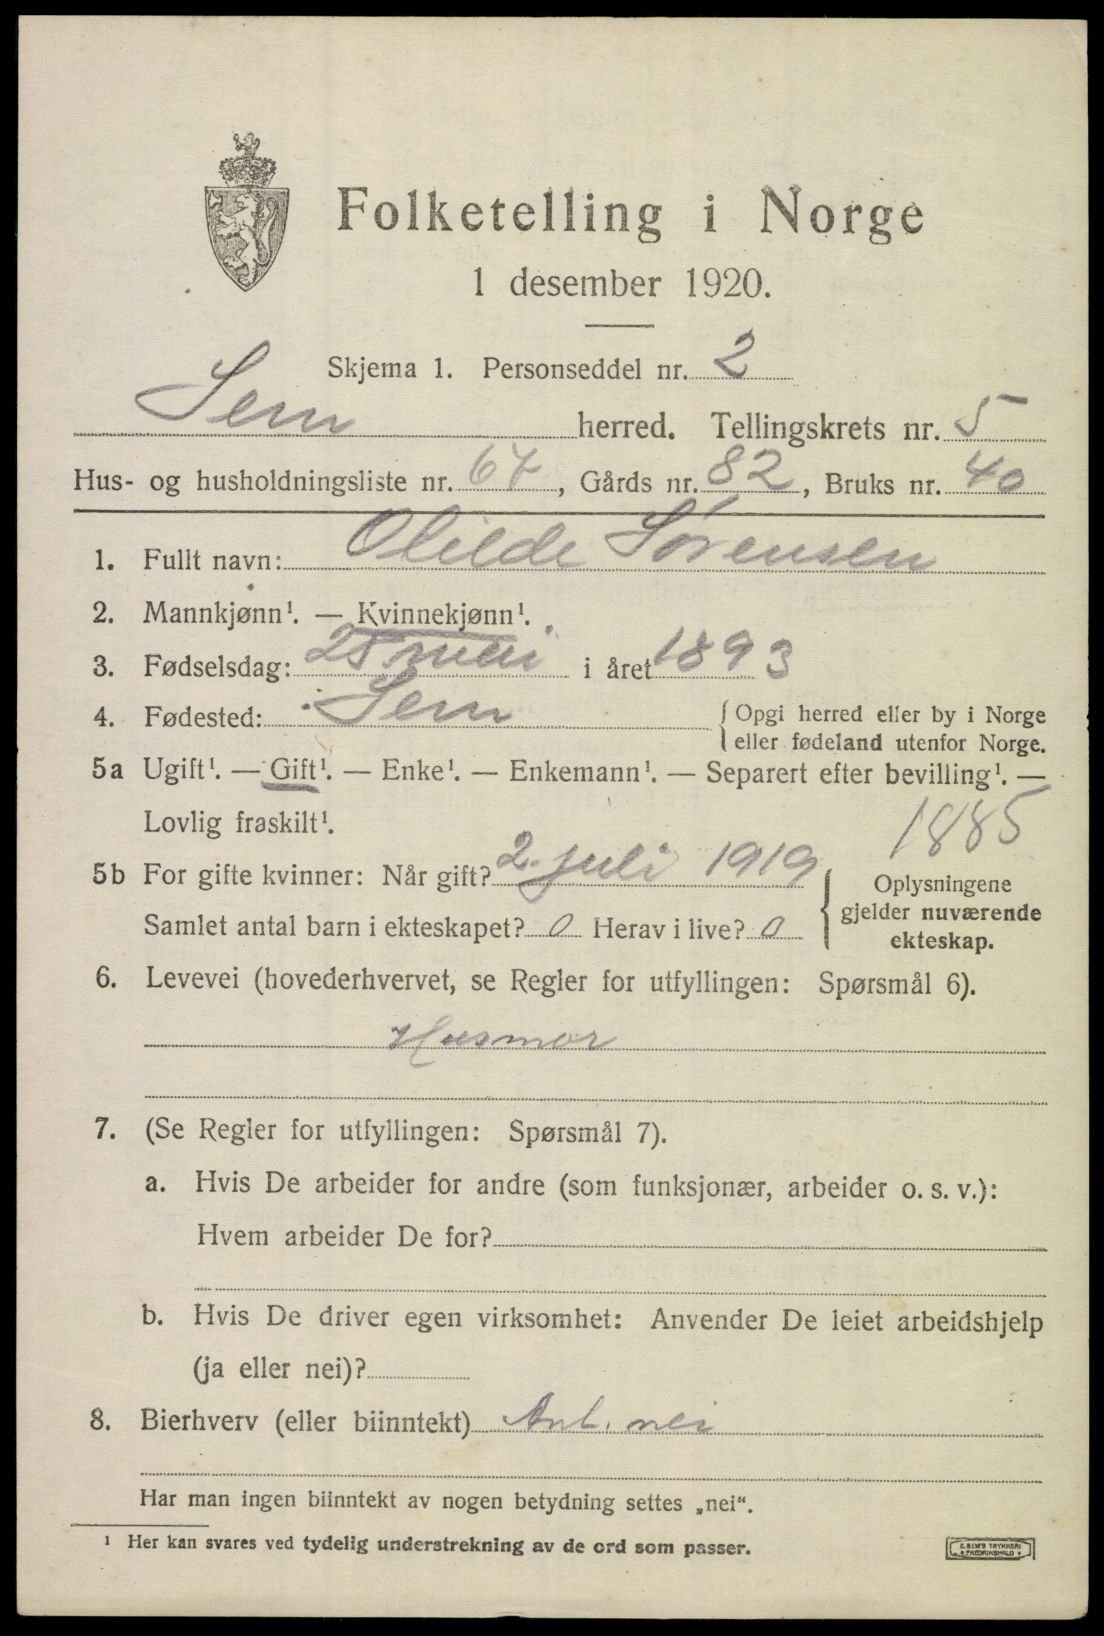 Folketelling i Norge
1 desember 1920.
Skjema 1. Personseddel nr. 2
Sem herred. Tellingskrets nr. 5
Hus- og husholdningsliste nr. 67, Gårds nr. 82, Bruks nr. 40
1. Fullt navn: Olilde Sørensen
2. Mannkjønn¹. — Kvinnekjønn¹.
3. Fødselsdag: 25 mai i året 1893
4. Fødested: Sem {Opgi herred eller by i Norge
eller fødeland utenfor Norge.
5a Ugift¹. — Gift¹. — Enke¹. — Enkemann¹. — Separert efter bevilling¹. —
Lovlig fraskilt¹. 1885
5b For gifte kvinner: Når gift? 2. juli 1919 { Oplysningene
gjelder nuværende
Samlet antal barn i ekteskapet? 0 Herav i live? 0 ekteskap.
6. Levevei (hovederhvervet, se Regler for utfyllingen: Spørsmål 6).
Husmor
7. (Se Regler for utfyllingen: Spørsmål 7).
a. Hvis De arbeider for andre (som funksjonær, arbeider o. s. v.):
Hvem arbeider De for?
b. Hvis De driver egen virksomhet: Anvender De leiet arbeidshjelp
(ja eller nei)?
8. Bierhverv (eller biinntekt) Ant. nei
Har man ingen biinntekt av nogen betydning settes „nei“.
¹ Her kan svares ved tydelig understrekning av de ord som passer.
E. SEMS TRYKKERI
FREDRIKSHALD